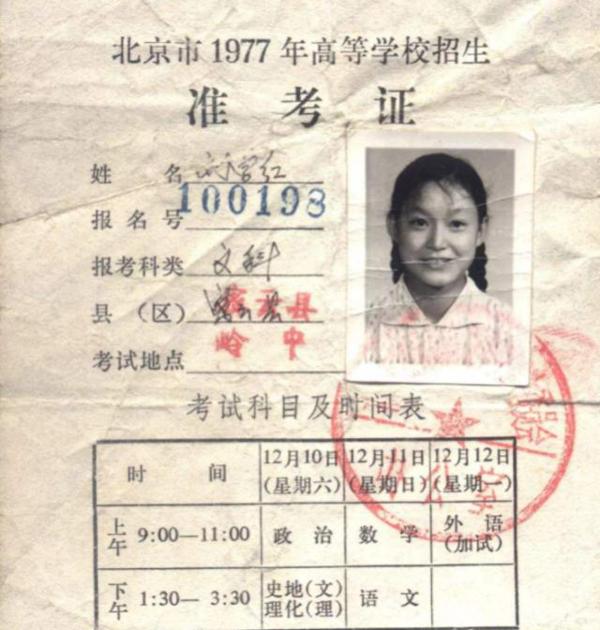 北京市1977年高等学校招生
准考证
姓 名 刘学红
报名号 100198
报考科类 文科
县（区） 密云县
密云县
岭中
考试地点
考试科目及时间表
时 间 12月10日（星期六） 12月11日（星期日） 12月12日（星期一）
上午 9:00—11:00 政治 数学 外语（加试）
下午 1:30— 3:30 史地（文）理化（理） 语文